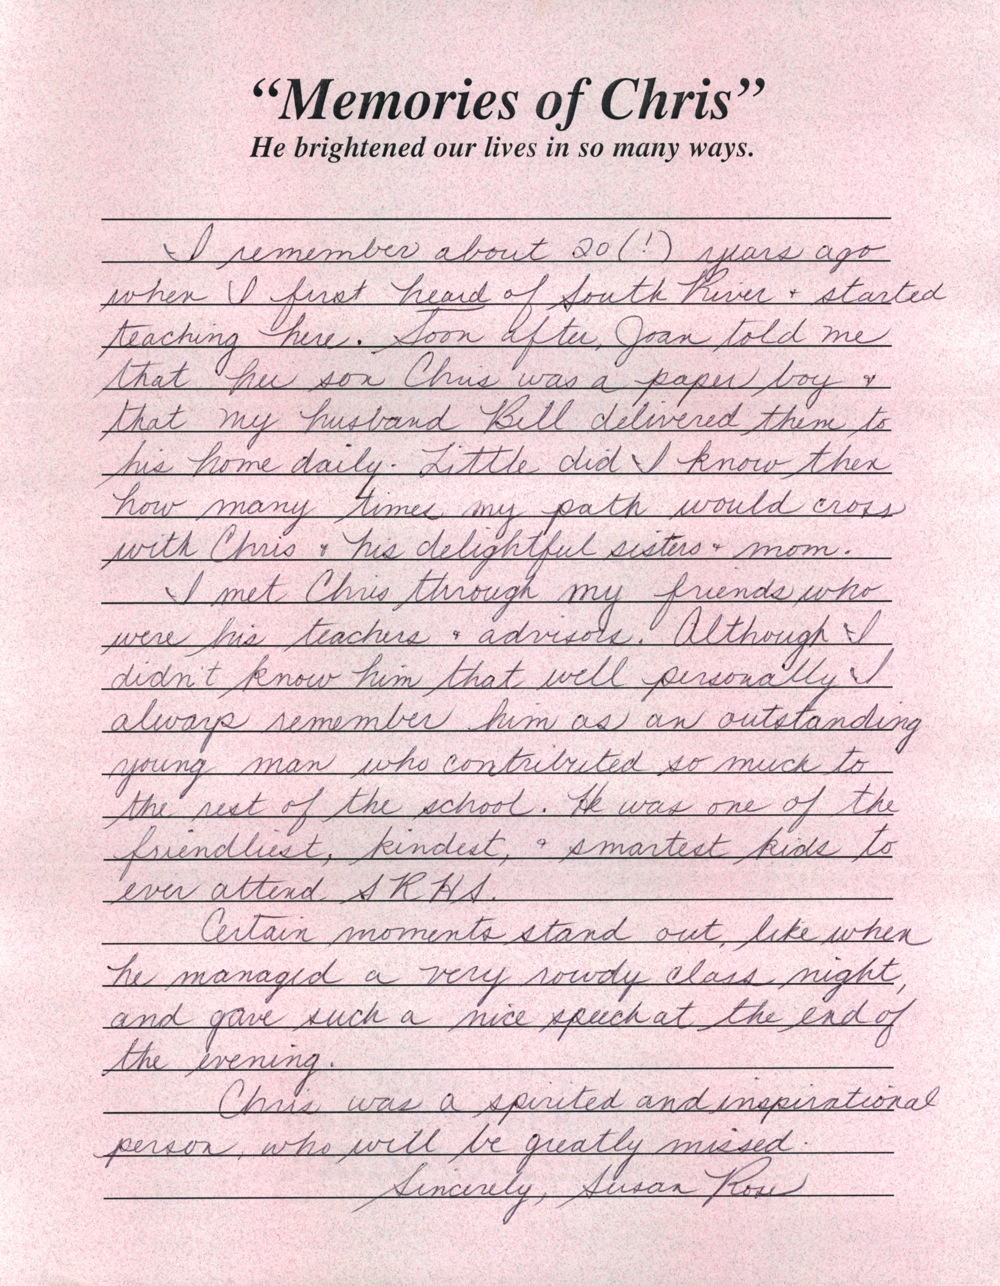 “Memories of Chris”
He brightened our lives in so many ways.
I remember about 20(!) years ago
when I first heard of South River + started
teaching here. Soon after, Joan told me
that her son Chris was a paper boy +
that my husband Bill delivered them to
his home daily. Little did I know then
how many times my path would cross
with Chris + his delightful sisters + mom.
I met Chris through my friends who
were his teachers + advisors. Although I
didn't know him that well personally I
always remember him as an outstanding
young man who contributed so much to
the rest of the school. He was one of the
friendliest, kindest, + smartest kids to
ever attend SRHS.
Certain moments stand out, like when
he managed a very rowdy class night,
and gave such a nice speech at the end of
the evening.
Chris was a spirited and inspirational
person, who will be greatly missed.
Sincerely, Susan Rose